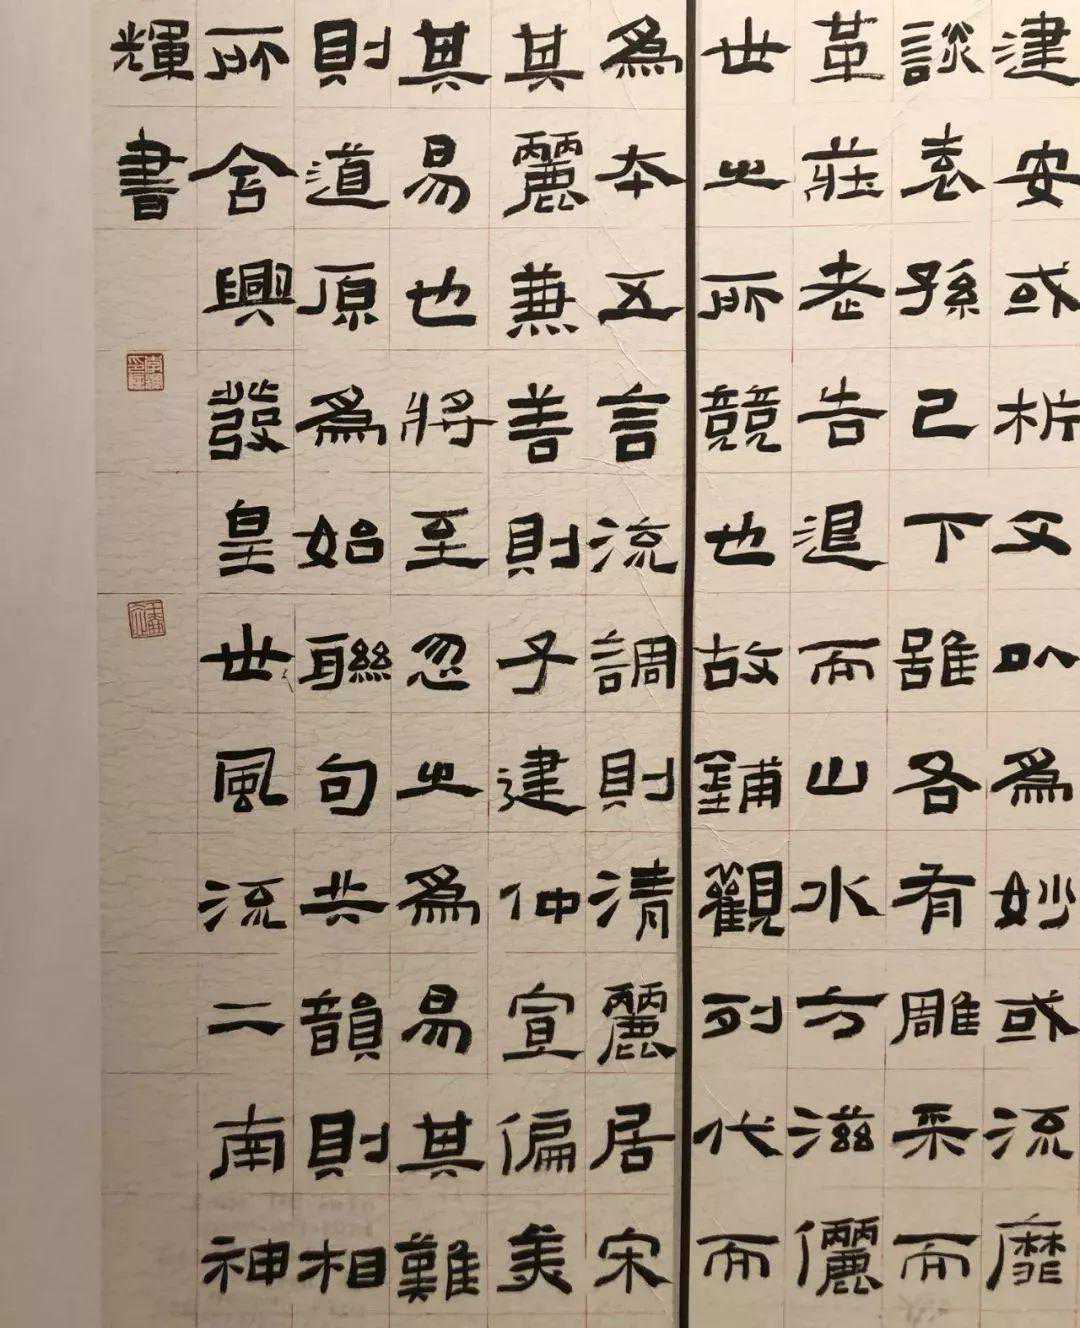 建安或析文以爲妙或流靡
談袁孫已下雖各有雕采而
革莊老告退而山水方滋儷
世之所競也故鋪觀列代而
爲本五言流調則清麗居宋
其麗兼善則子建仲宣偏美
其易也將至忽之爲易其難
則道原爲始聯句共韻則相
所含興發皇世風流二南神
輝書